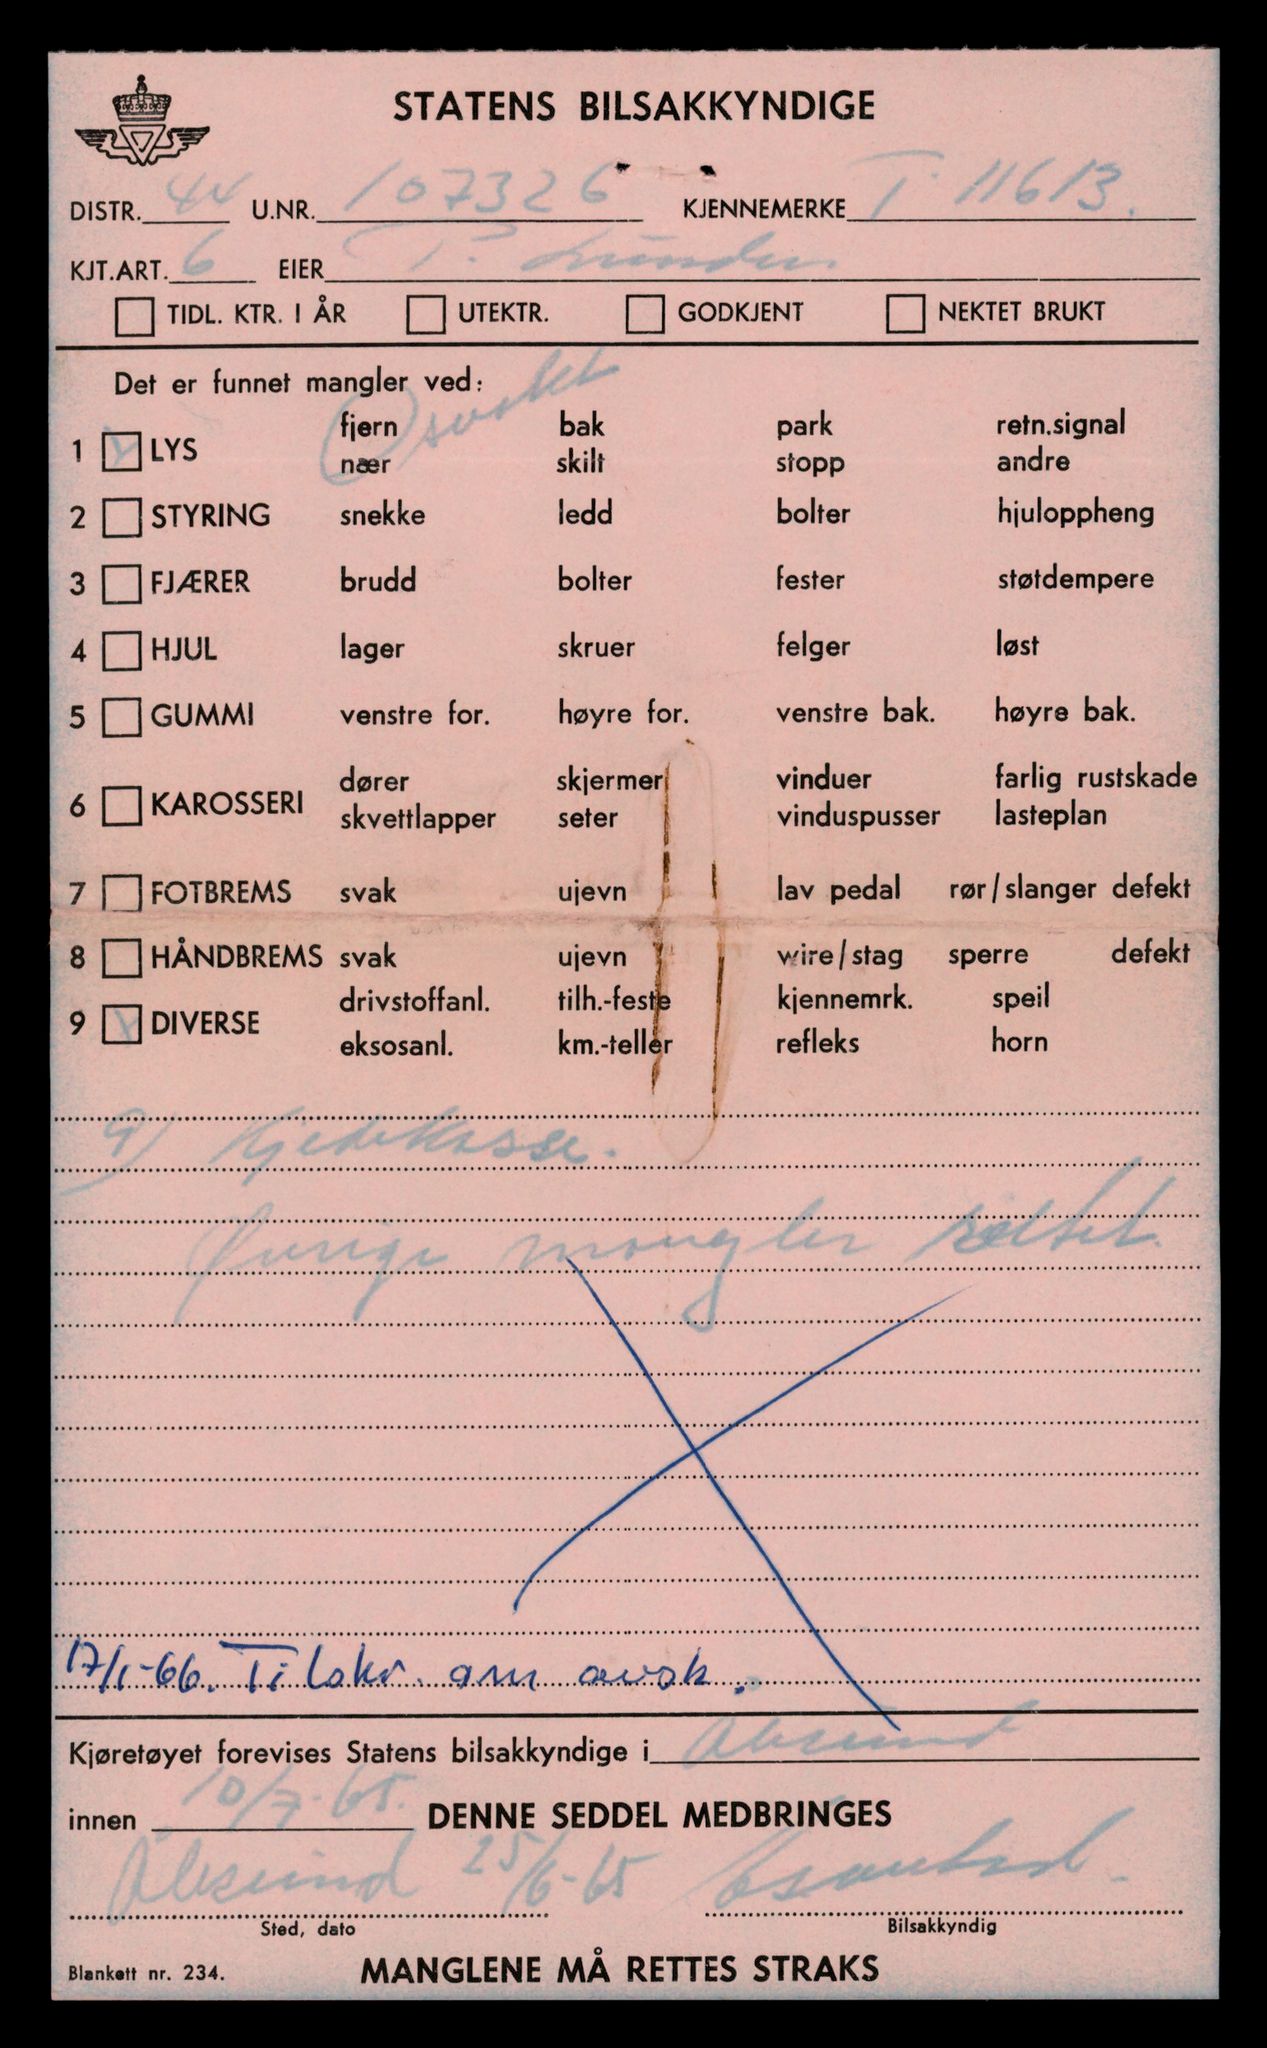 STATENS BILSAKKYNDIGE
DISTR. 44 U.NR. 107326 KJENNEMERKE T 11613.
KJT.ART. 6 EIER P.
TIDL. KTR. I ÅR UTEKTR. GODKJENT NEKTET BRUKT
Det er funnet mangler ved:
svakt
fjern bak park retn.signal
1 LYS
nær skilt stopp andre
2 STYRING snekke ledd bolter hjuloppheng
3 FJÆRER brudd bolter fester støtdempere
4 HJUL lager skruer felger løst
5 GUMMI venstre for. høyre for. venstre bak. høyre bak.
dører skjermer vinduer farlig rustskade
6 KAROSSERI
skvettlapper seter vinduspusser lasteplan
7 FOTBREMS svak ujevn lav pedal rør/slanger defekt
8 HÅNDBREMS svak ujevn wire/stag sperre defekt
drivstoffanl. tilh.-feste kjennemrk. speil
9 DIVERSE
eksosanl. km.-teller refleks horn
9) kjedekasse.
Øvrige mangler rettet.
17/1-66. Tilskr. om avsk.
Kjøretøyet forevises Statens bilsakkyndige i Ålesund
innen 10/7-65. DENNE SEDDEL MEDBRINGES
Ålesund 25/6-65
Sted, dato Bilsakkyndig
Blankett nr. 234. MANGLENE MÅ RETTES STRAKS